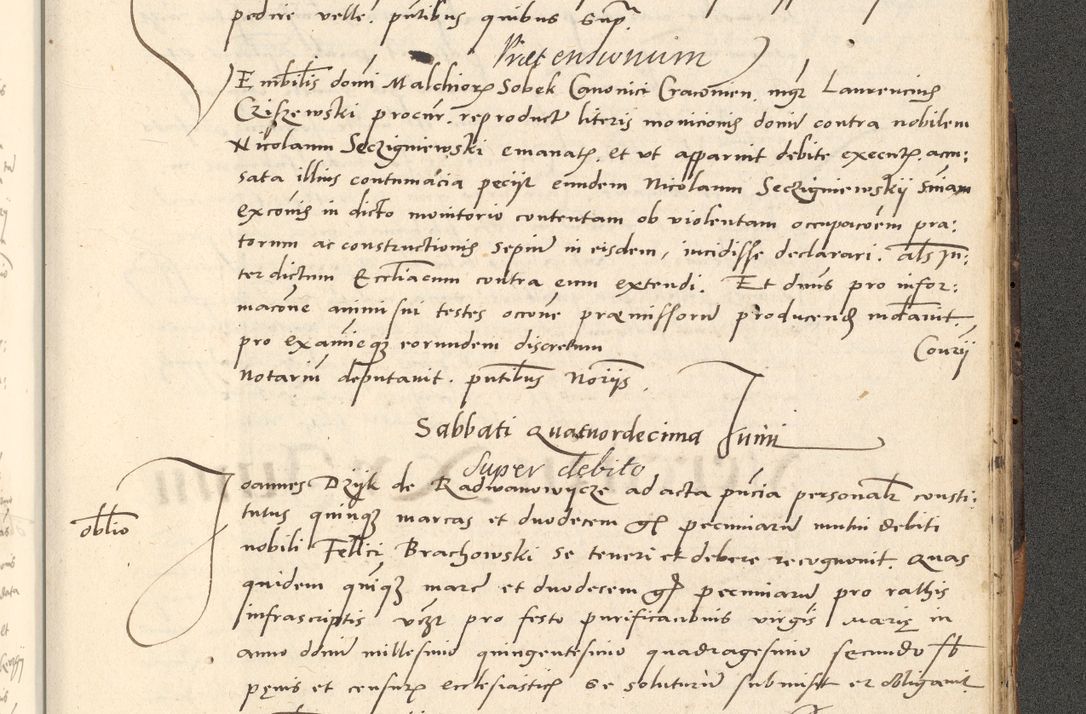 pedire velle. pntibus quibus Supra
Pretensionum
E nobilis domi Malchiorz Sobek Canonici Cracomen. mgr Laurencius
Cziszewski procur. reproduct literis monicionis domi contra nobilem
Nicolaum Seczigniewski emanatz. et ut apparuit debite executz. accu:
sata illius contumacia peciit eundem Nicolaum Seczigniewskij Sniam
exconis in dicto monitorio contentam ob violentam occupacoem pra:
torum ac constructionis sepium in eisdem, incidisse declarari. als in:
terdictum Eccliacum contra eum extendi. Et dnus pro infor:
macone animi sui testes occone præmissorum producend mdavit.
pro examineqz eorundem discretum Courzij
Notarium deputavit. pntibus Noriis.
Sabbati Quatuordecima Junii
Super debito
Joannes Dzijk de Radwanowijcze ad acta pncia personalr consti:
oblio
tutus quinqz marcas et duodecem gr pecuniarum mutui debiti
nobili Felici Brachowski se teneri et debere recognovit. Quas
quidem quinqz marc et duodecem gr pecuniarum pro rathis
infrascriptis vczt pro festo purificacionis virgis Marię in
anno domi millesimo quingentesimo quadragesimo secundo sb
pęnis et censurz ecclesiasticz se soluturum submisit et obligavit